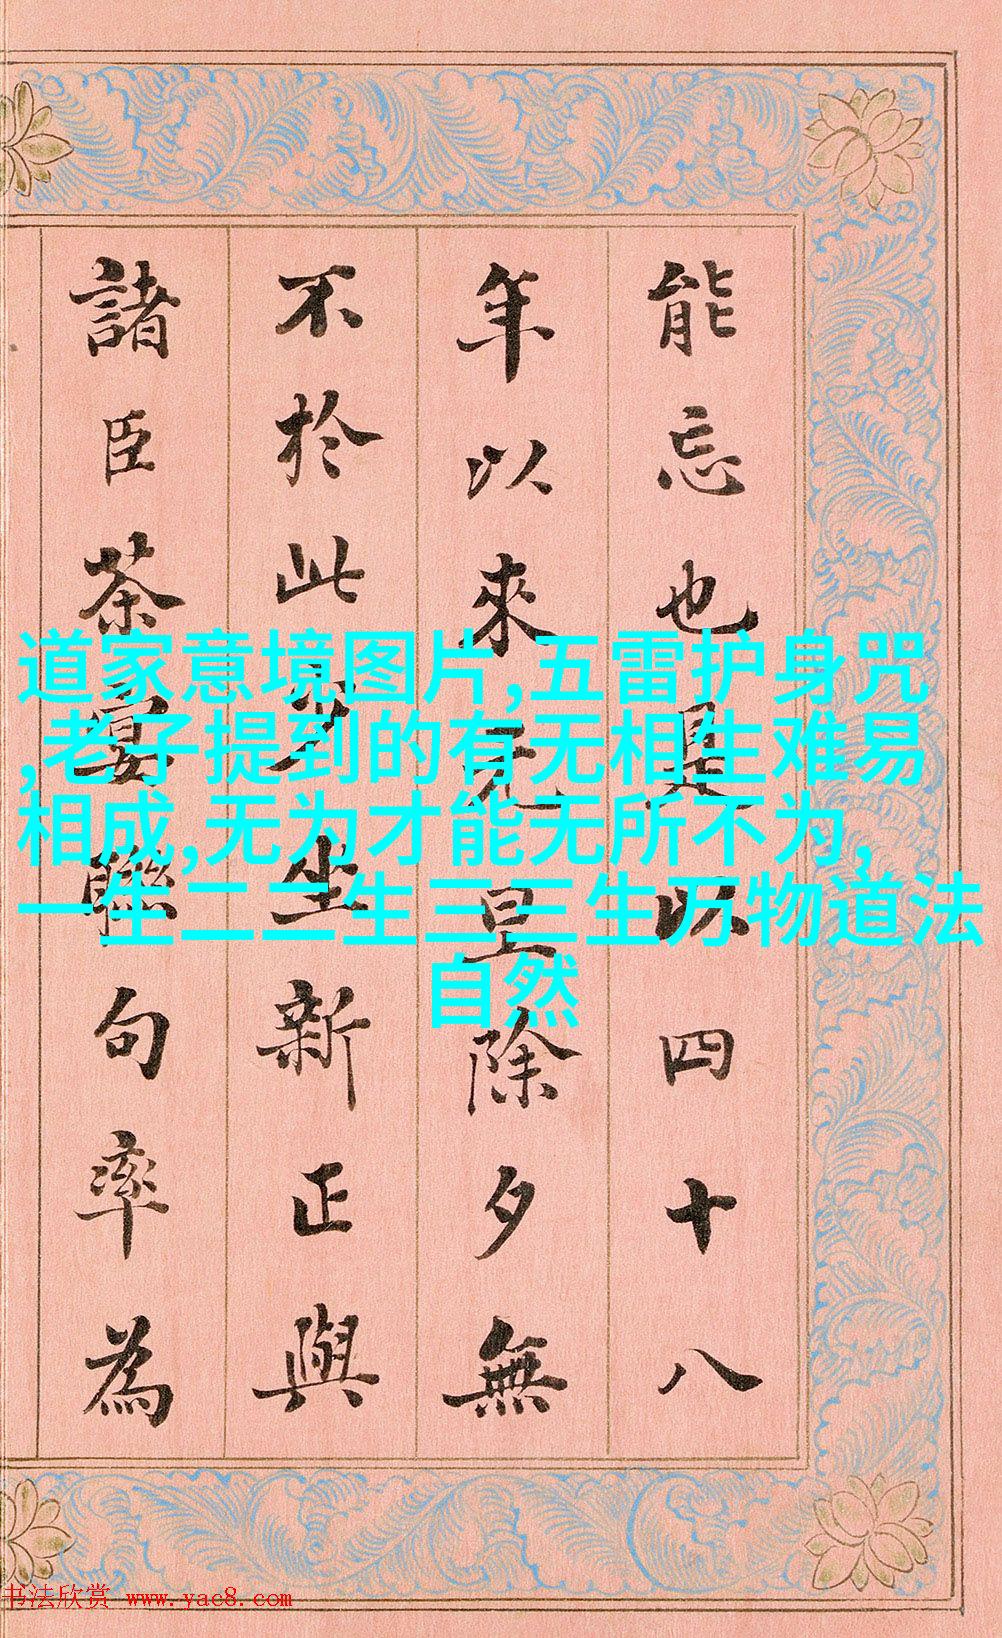 能忘也是以四十八
年以來元旦除夕無
不於此坐新正與
諸臣茶宴聯句率為
道家意境图片,五雷护身咒
,老子提到的有无相生难易
相成,无为才能无所不为,
一生二二生三三生万物道法
自然
书法欣赏 www.yac8.com